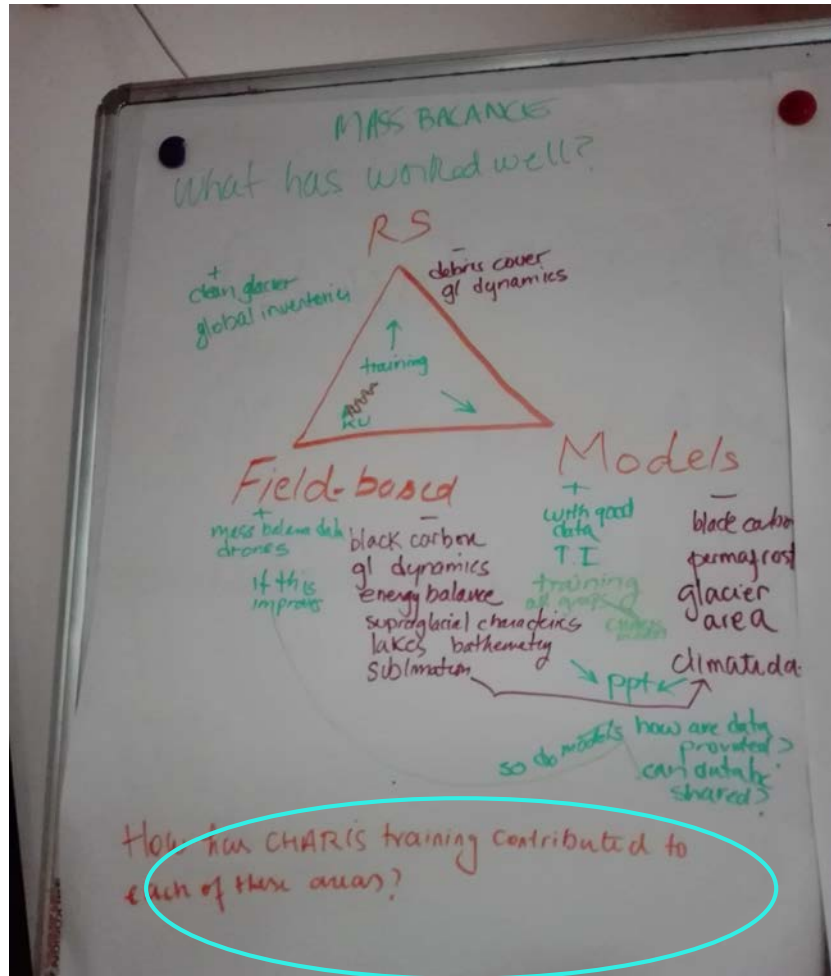 MASS BALANCE
What has worked well?
RS
+
clean glacier
global inventories
-
debris cover
gl dynamics
training
KU
Field-based
+
mass balance data
drones
if this
improves
-
black carbon
gl dynamics
energy balance
supraglacial
lakes bathemetry
sublimation
Models
+
with good
data
T.I
training
all groups
-
black carbon
permafrost
glacier
area
climate da
ppt
so do models
how are data
provided?
can data be
shared?
How has CHARIS training contributed to
each of these areas?